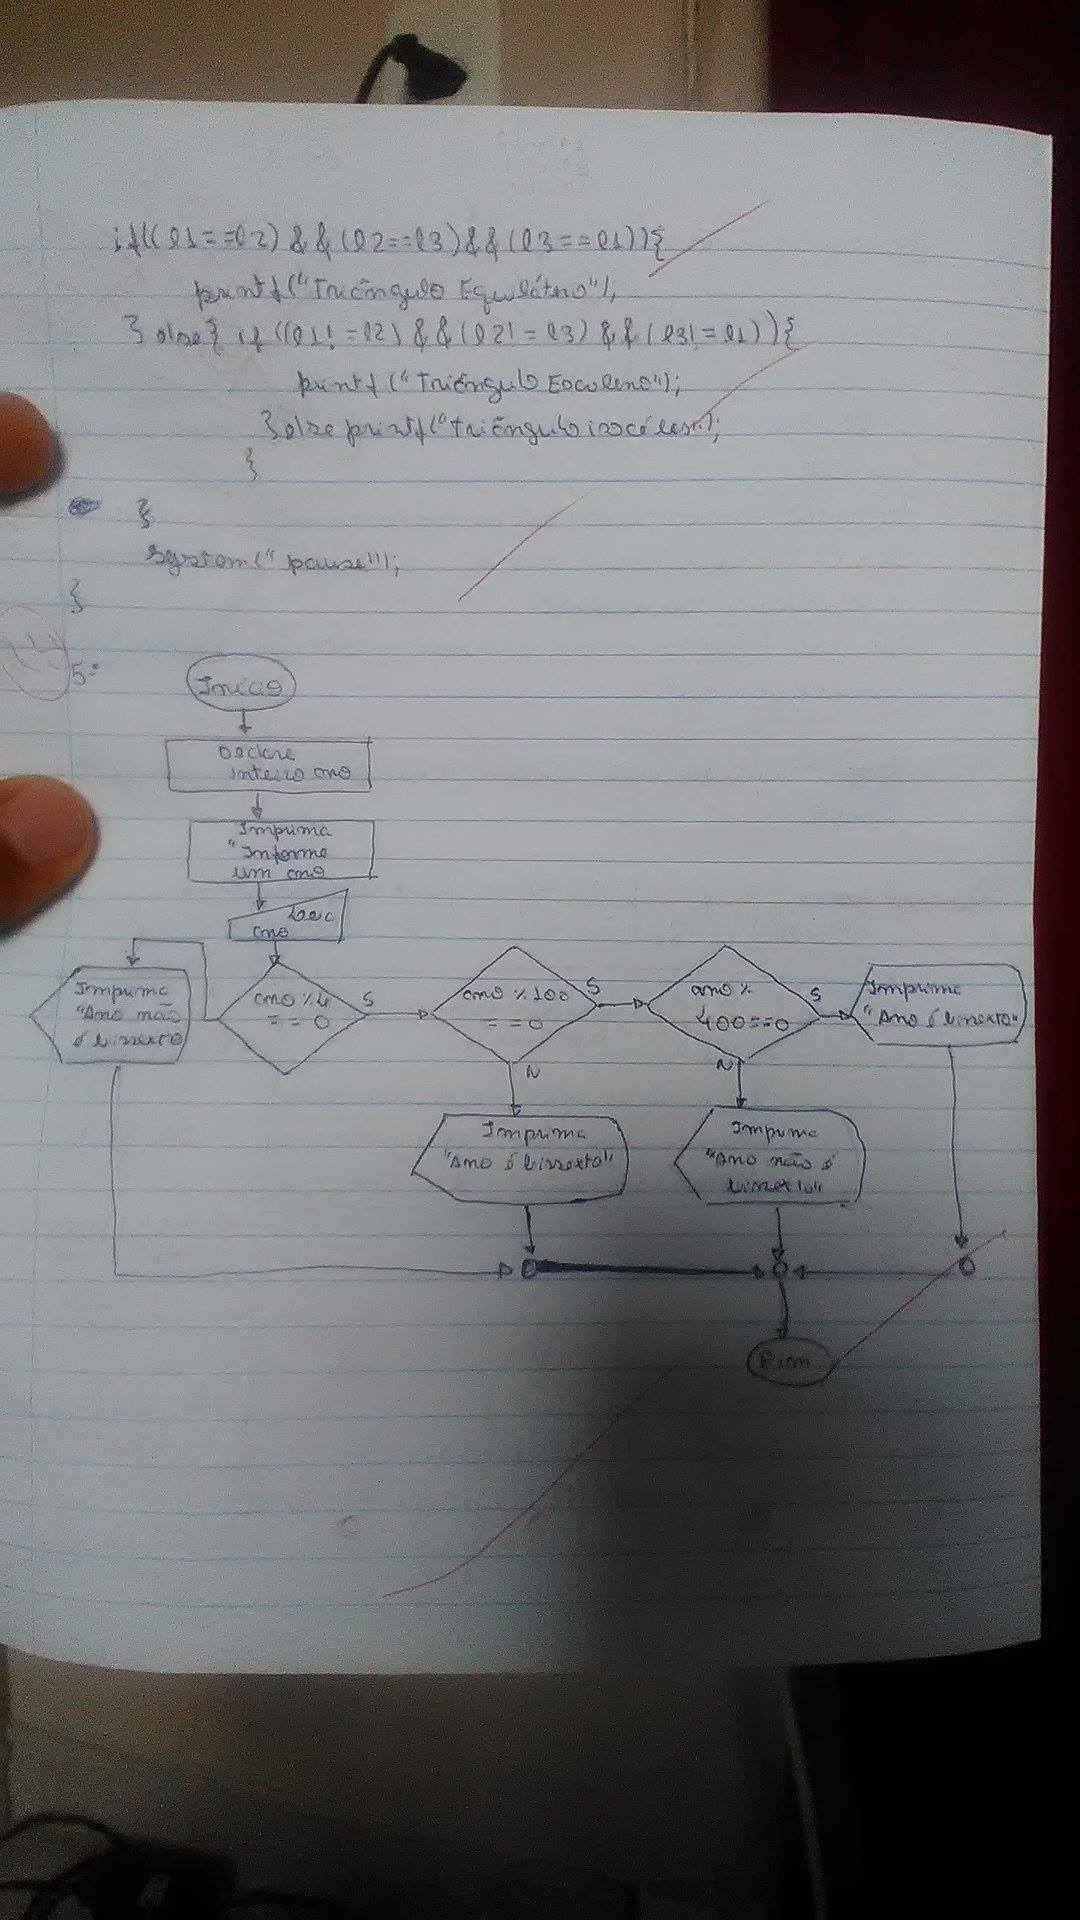 if((l1==l2)&&(l2==l3)&&(l3==l1)){
printf("Triângulo Equilátero");
}else{ if ((l1!=l2) &&(l2!=l3) &&(l3!=l1)){
printf("Triângulo Escaleno");
}else printf("Triângulo isóceles");
}
}
system("pause");
}
5-
Início
Declare
inteiro ano
Imprima
"Informe
um ano
Leia
ano
Imprima
"Ano não
é bissexto
ano % 4
== 0
S
ano % 100
==0
S
N
ano %
400==0
S
N
Imprima
"Ano é bissexto"
Imprima
"Ano é bissexto"
Imprima
"Ano não é
bissexto"
Fim